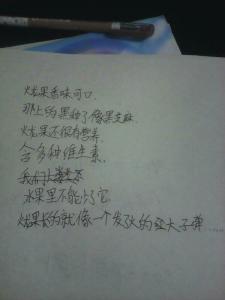 火龙果香味可口.
那上的黑种子像黑芝麻
火龙果还很有营养.
含多种维生素.
我们
水果里不能少了它.
火龙果长的就像一个发火的红大子弹……